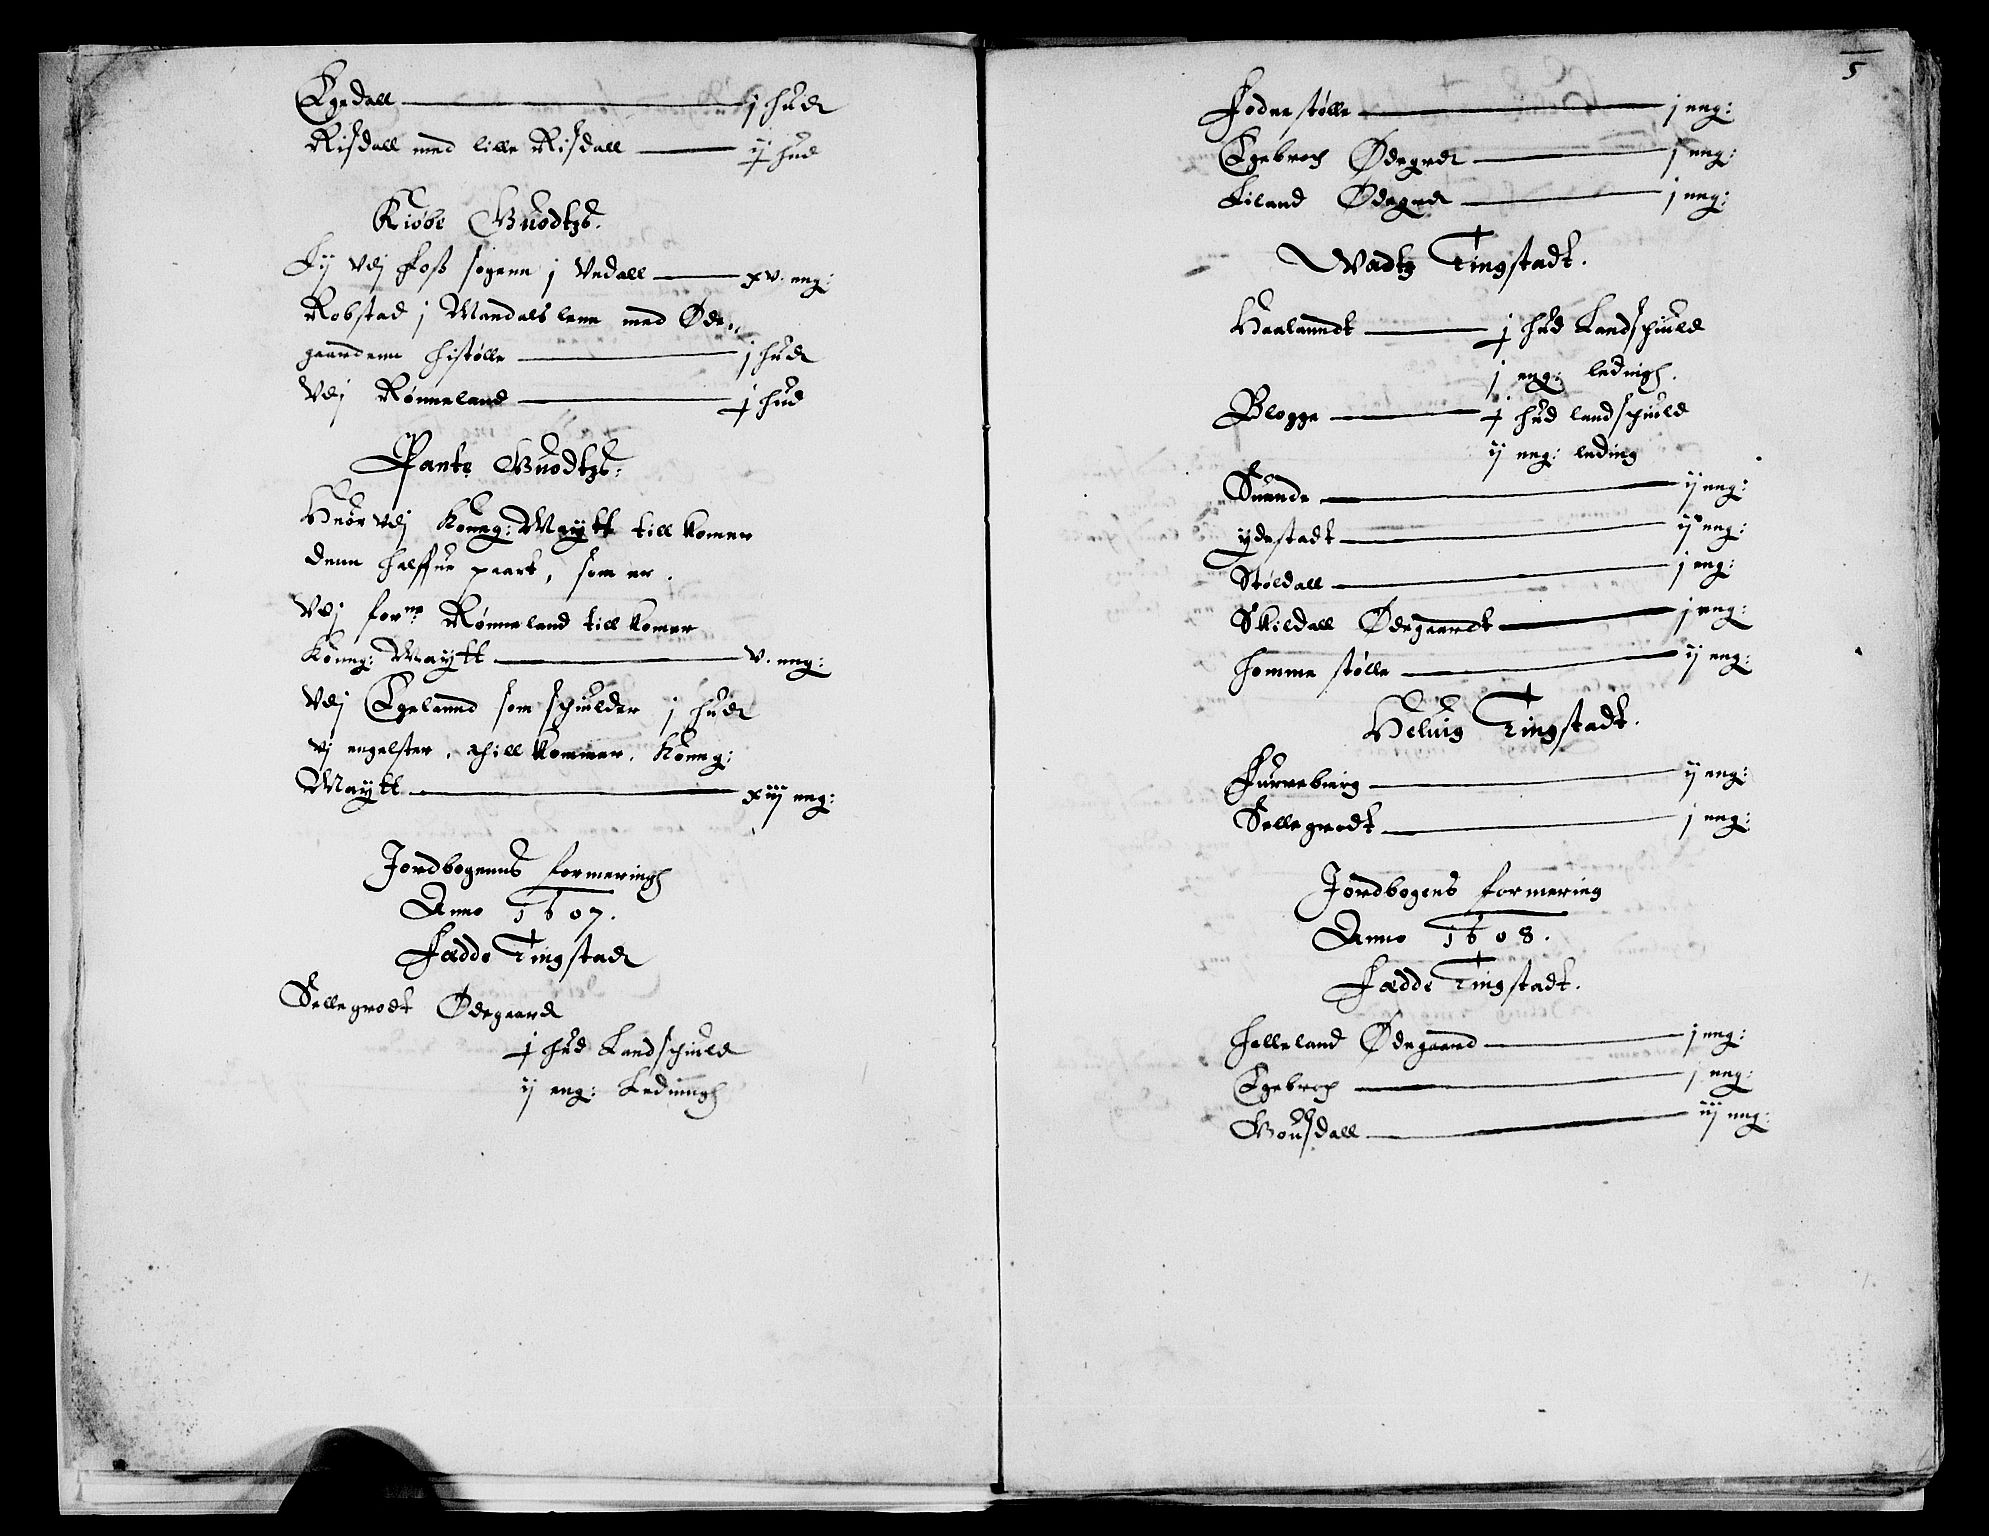 Egedall — j hudt
Rissdall med lille Rissdall — ½ hud
Kiøbe Guodtzs.
Ly vdj Foss sogenn j Undall — xv. eng:
Robstad j Mandals lenn med Øde„
gaardenn Histølle — j hudt
Vdj Rønneland — ½ hud
Pante Guodtzs:
Huor vdj Konng: Maytt till komer
denn halffue paart, som er.
Vdj forne Rønneland till komer
Konng: Maytt — v. eng:
Vdj Egelannd som schiulder j hudt
vj engelster, thill kommer, Konng:
Maytt — xiij eng:
Jordbogenns formeringh
Anno 1607.
Fædde Tingstad
Sellegrodt Ødegaard
½ hud Landschuld
ij eng: Ledningh
5
Fodnestølle — j eng:
Egebroch Ødegrdt — j eng:
Liland Ødegrdt — j eng:
Wadtz Tingstadt.
Haalanndt — ½ hud Landschiuld
j eng: ledingh.
Blogge — ½ hud landschiuld
ij eng: leding
Sunde — ij eng:
ydestadt — ij eng:
Støldall — j eng:
Skildall Ødegaardt — j eng:
Homme stølle — ij eng:
Heluig Tingstadt.
Furrebierg — ij eng:
Sellegrodt — j eng:
Jordbogens formering
Anno 1608.
Fædde Tingstadt.
Helleland Ødegaard — j eng:
Egebroch — j eng:
Gousdall — iij eng: